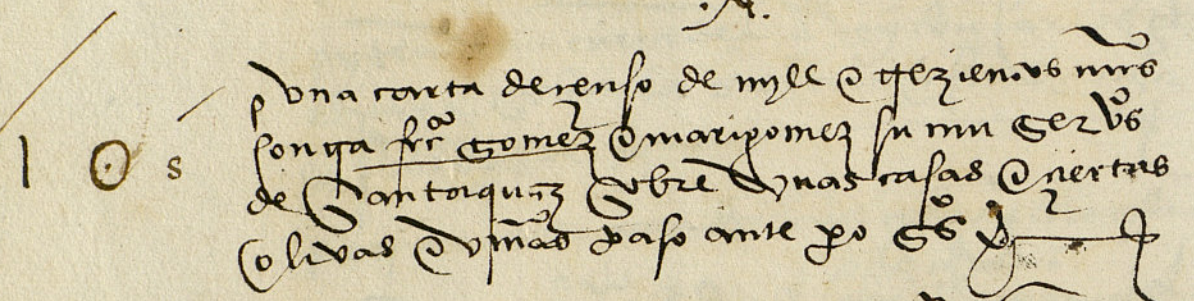 una carta de censo de myll e trezientos mrs
contra frco gomez e mari gomez su muger vos
de santorquaz sobre unas casas e ciertas
olivas e vinas paso ante po gs